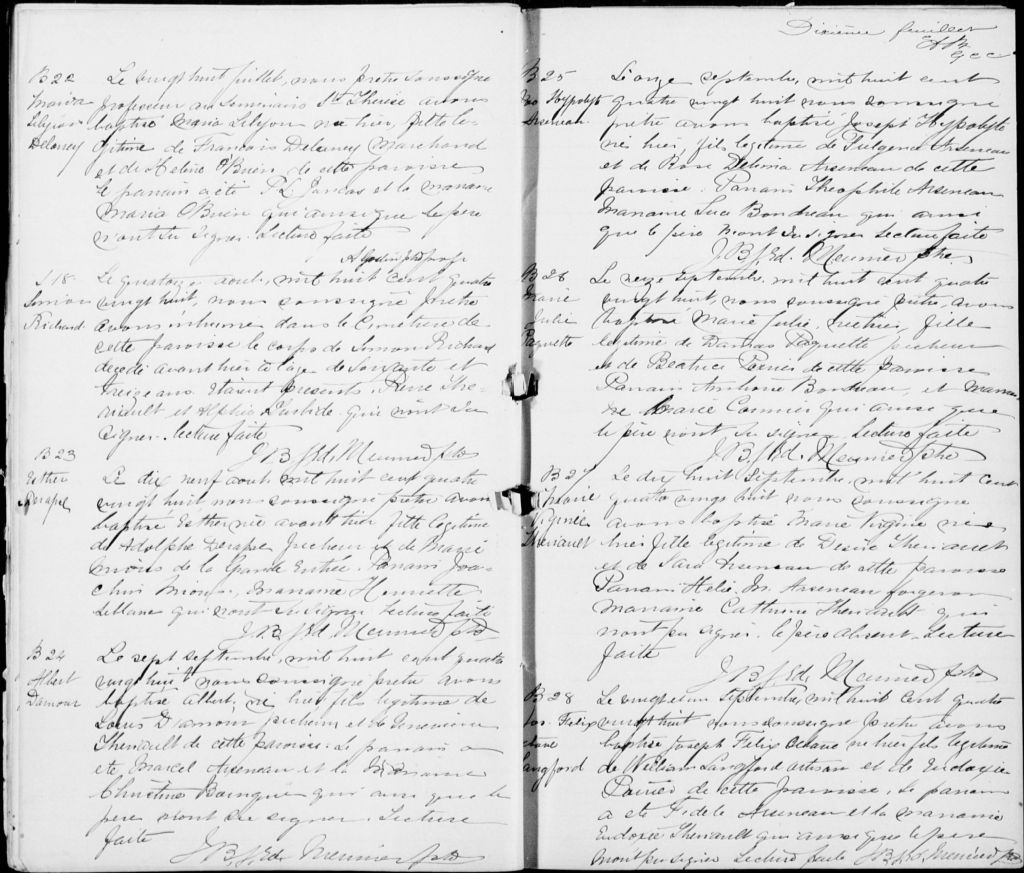 B 22
Maria
Lilyion
Delaney
Le vingt huit juillet, nous prêtre soussigné
professeur au Seminaire Ste Therèse avons
baptisé Maria Lilyon née hier, fille lé-
gitime de Francois Delaney marchand
et de Helène O'Brien de cette paroisse
le parrain a été P. L. et la marraine
Maria O'Brien qui ainsi que le père
n'ont su signer. Lecture faite
ptre prof.
S 18
Simon
Richard
Le quatorze aout, mil huit cent quatre
vingt huit, nous soussigné prêtre
avons inhumé dans le cimetière de
cette paroisse le corps de Simon Richard
décédé avant hier à l'age de soixante et
treize ans. Etaient presents Pierre The-
riault et qui n'ont su
signer. lecture faite
J. B. Ed. Meunier ptre
B 23
Esther
Derapé
Le dix neuf aout, mil huit cent quatre
vingt huit, nous soussigné prêtre avons
baptisé Esther née avant hier fille légitime
de Adolphe Derapé pecheur et de Marie
Mious de la Grande Entrée. Parrain Joa-
chim Mious, Marraine Henriette
Leblanc qui n'ont su signer lecture faite
J. B. Ed. Meunier ptre
B 24
Albert
Damour
Le sept septembre, mil huit cent quatre
vingt huit nous soussigné prêtre avons
baptisé Albert, né hier fils légitime de
Louis Damour pecheur et de Genevieve
Theriault de cette paroisse. le parrain a
été Marcel Arseneau et la Marraine
Christine qui ainsi que le
père n'ont su signer. Lecture
faite
J. B. Ed. Meunier ptre
Dixième feuillet
B 25
Jos Hypolyte
Arseneau
Le onze septembre, mil huit cent
quatre vingt huit nous soussigné
prêtre avons baptisé Joseph Hypolyte
né hier, fils légitime de Fulgence Arseneau
et de Rose Delima Arseneau de cette
paroisse. Parrain Theophile Arseneau
Marraine Luce Boudreau qui ainsi
que le père n'ont su signer Lecture faite
J. B. Ed. Meunier ptre
B 26
Marie
Julie
Paquette
Le seize septembre, mil huit cent quatre
vingt huit, nous soussigné prêtre, avons
baptisé Marie Julie, née hier, fille
légitime de Damas Paquette pecheur
et de Beatrice Poirier de cette paroisse
Parrain Ambroise Boudreau, et Marrai-
ne Marie Cormier qui ainsi que
le père n'ont su signer Lecture faite
J. B. Ed. Meunier ptre
B 27
Marie
Virginie
Theriault
Le dix huit Septembre, mil huit cent
quatre vingt huit nous soussigné
avons baptisé Marie Virginie née
hier fille légitime de Desiré Theriault
et de Sara Arseneau de cette paroisse
Parrain Arseneau forgeron
Marraine Catherine Theriault qui
n'ont pu signer. le père absent. Lecture
faite
J. B. Ed. Meunier ptre
B 28
Jos. Felix
Octave
Langford
Le vingt et un Septembre, mil huit cent quatre
vingt huit nous soussigné prêtre avons
baptisé Joseph Felix Octave né hier fils légitime
de William Langford artisan et de Eudoxie
Poirier de cette paroisse. Le parrain
a été Fidele Arseneau et la marraine
Eudoxie Theriault qui ainsi que le père
n'ont pu signer Lecture faite J. B. Ed. Meunier ptre